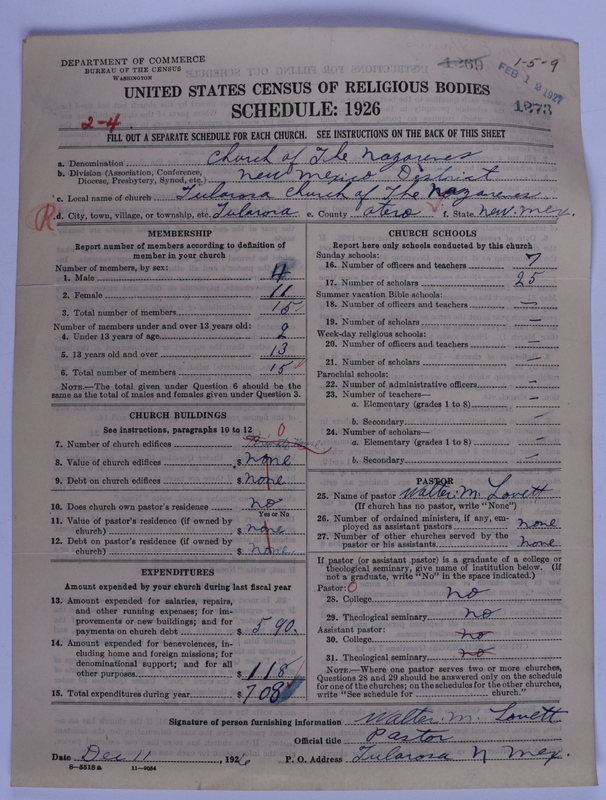 DEPARTMENT OF COMMERCE
BUREAU OF THE CENSUS
WASHINGTON
1269
1-5-9
FEB 12 1927
1273
UNITED STATES CENSUS OF RELIGIOUS BODIES
SCHEDULE: 1926
2-4
FILL OUT A SEPARATE SCHEDULE FOR EACH CHURCH. SEE INSTRUCTIONS ON THE BACK OF THIS SHEET
a. Denomination Church of The Nazarenes
b. Division (Association, Conference, Diocese, Presbytery, Synod, etc.) New Mexico District
c. Local name of church Tularosa Church of The Nazarenes
R d. City, town, village, or township, etc. Tularosa e. County otero f. State New. Mex.
MEMBERSHIP
Report number of members according to definition of
member in your church
Number of members, by sex:
1. Male 4
2. Female 11
3. Total number of members 15
Number of members under and over 13 years old:
4. Under 13 years of age 2
5. 13 years old and over 13
6. Total number of members 15
NOTE.—The total given under Question 6 should be
same as the total of males and females given under Question 3.
CHURCH BUILDINGS
See instructions, paragraphs 10 to 12
7. Number of church edifices 0
8. Value of church edifices $ none
9. Debt on church edifices $ none
10. Does church own pastor's residence? no
Yes or No
11. Value of pastor's residence (if owned by
church) $ none
12. Debt on pastor's residence (if owned by
church) $ none
EXPENDITURES
Amount expended by your church during last fiscal year
13. Amount expended for salaries, repairs,
and other running expenses; for im-
provements or new buildings; and for
payments on church debt $ 590.
14. Amount expended for benevolences, in-
cluding home and foreign missions; for
denominational support; and for all
other purposes $ 118
15. Total expenditures during year $ 708
CHURCH SCHOOLS
Report here only schools conducted by this church
Sunday schools:
16. Number of officers and teachers 7
17. Number of scholars 25
Summer vacation Bible schools:
18. Number of officers and teachers —
19. Number of scholars —
Week-day religious schools:
20. Number of officers and teachers —
21. Number of scholars —
Parochial schools:
22. Number of administrative officers —
23. Number of teachers—
a. Elementary (grades 1 to 8) —
b. Secondary —
24. Number of scholars—
a. Elementary (grades 1 to 8) —
b. Secondary —
PASTOR
25. Name of pastor Walter. M. Lovett
(If church has no pastor, write "None")
26. Number of ordained ministers, if any, em-
ployed as assistant pastors none
27. Number of other churches served by the
pastor or his assistants none
If pastor (or assistant pastor) is a graduate of a college or
theological seminary, give name of institution below. (If
not a graduate, write "No" in the space indicated.)
Pastor: 0
28. College no
29. Theological seminary no
Assistant pastor:
30. College no
31. Theological seminary no
NOTE.—Where one pastor serves two or more churches,
Questions 28 and 29 should be answered only on the schedule
for one of the churches; on the schedules for the other churches,
write "See schedule for church."
Signature of person furnishing information Walter. M. Lovett
Official title Pastor
Date Dec 11, 1926 P. O. Address Tularosa N Mex.
8-5518 a 11-9034